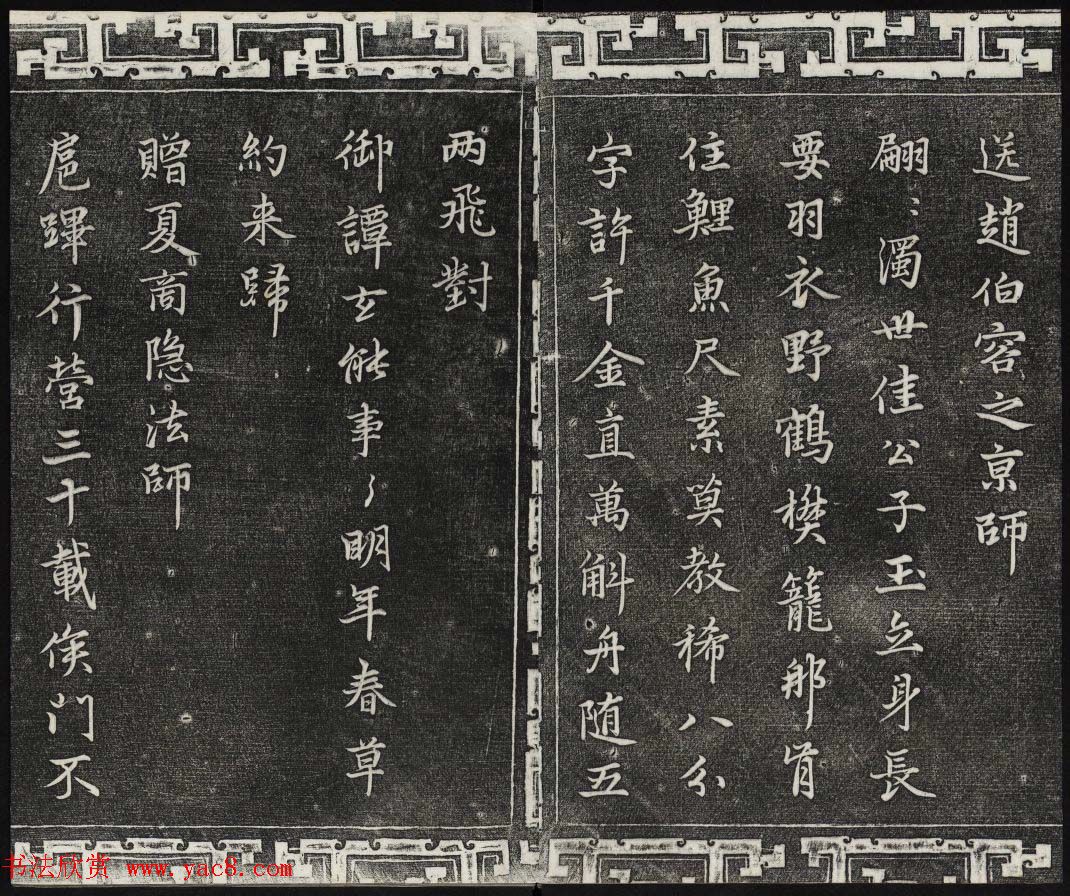 送趙伯容之京師
翩〻濁世佳公子玉立身長
要羽衣野鶴樊籠那肯
住鯉魚尺素莫教稀八分
字許千金直萬斛舟随五
两飛對
御譚玄能事〻明年春草
約来歸
贈夏商隐法師
扈蹕行營三十載侯門不
书法欣赏 www.yac8.com